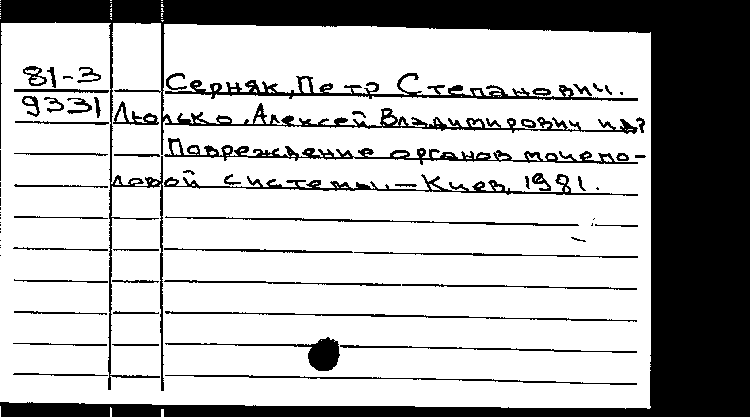 81-3 Серняк, Петр Степанович.
9331 Люлько, Алексей Владимирович и др
Повреждение органов мочепо-
ловой системы. — Киев, 1981.